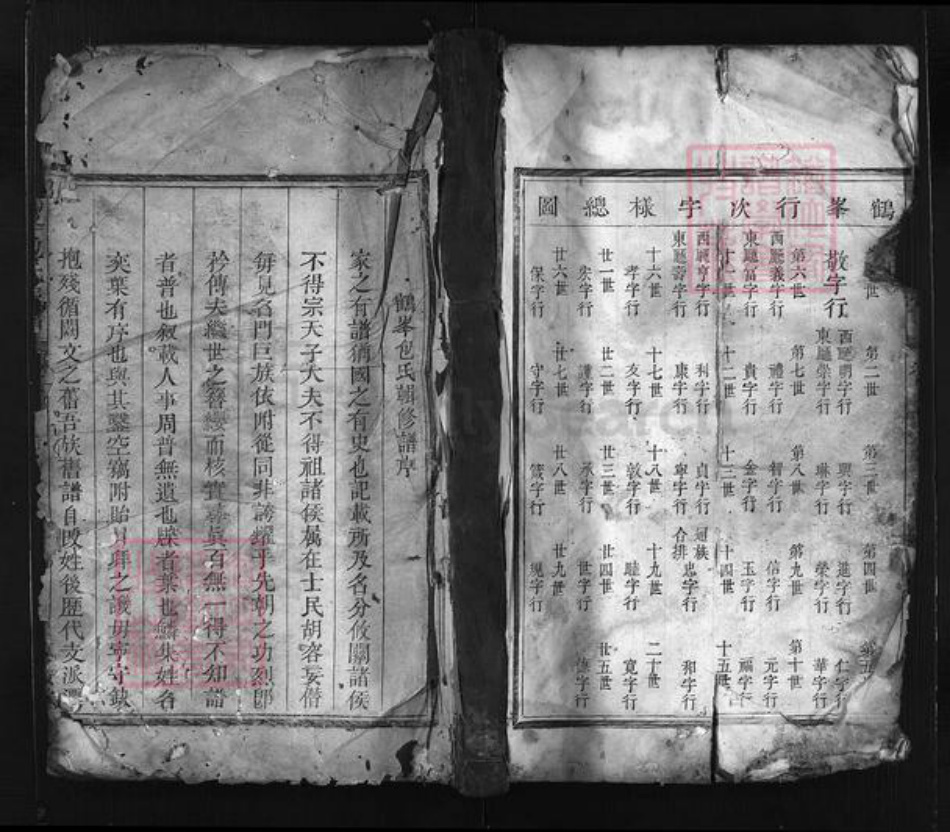 鶴峯行次字樣總圖
第二世
第三世
第四世
敬字行
西廳明字行
東廳崇字行
興字行
琳字行
進字行
榮字行
仁字行
華字行
第六世
第七世
第八世
第九世
第十世
西廳義字行
東廳富字行
禮字行
貴字行
智字行
金字行
信字行
玉字行
元字行
福字行
十一世
十二世
十三世
十四世
十五世
西廳亨字行
東廳壽字行
利字行
康字行
貞字行
寧字行
通族合排
忠字行
和字行
十六世
十七世
十八世
十九世
二十世
孝字行
友字行
敦字行
睦字行
寬字行
廿一世
廿二世
廿三世
廿四世
廿五世
宏字行
謹字行
承字行
世字行
傳字行
廿六世
廿七世
廿八世
廿九世
保字行
守字行
箴字行
規字行
鶴峯包氏輯修譜序
家之有譜猶國之有史也記載所及名分攸關諸侯
不得宗天子大夫不得祖諸侯屬在士民胡容妄僭
每見名門巨族依附從同非誇耀乎先朝之功烈卽
矜傳夫繼世之簪纓而核實尋眞百無一得不知譜
者普也叙載人事周普無遺也牒者葉也鱗集姓名
奕葉有序也與其鑿空竊附貽
拜之譏毋寧守缺
抱殘循闕文之舊吾族舊譜自改姓後歷代支派